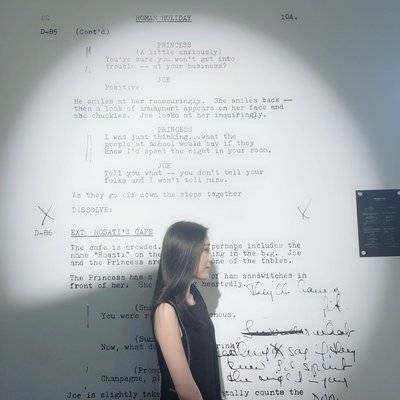 ROMAN HOLIDAY 104.
D-85 (Cont'd)
PRINCESS
(A little anxiously)
You're sure you won't get into
trouble -- at your business?
JOE
Positive.
He smiles at her reassuringly. She smiles back --
then a look of amusement appears on her face and
she chuckles. Joe looks at her inquiringly.
PRINCESS
I was just thinking...what the
people at school would say if they
knew I'd spent the night in your room.
JOE
Tell you what -- you don't tell your
folks and I won't tell mine.
As they go off down the steps together
DISSOLVE:
D-86 EXT ROSATI'S CAFE
The cafe is crowded. perhaps includes the
name "Rosati" on the ing in the b.g. Joe
and the Princess are one of the tables.
The Princess has a of ham sandwiches in
front of her. She heartedly.
They'll have a
fit
You were
what
Now, what do rink?
say if they
knew I'd spent
the night in
Champagne, pl
Joe is slightly tally counts the